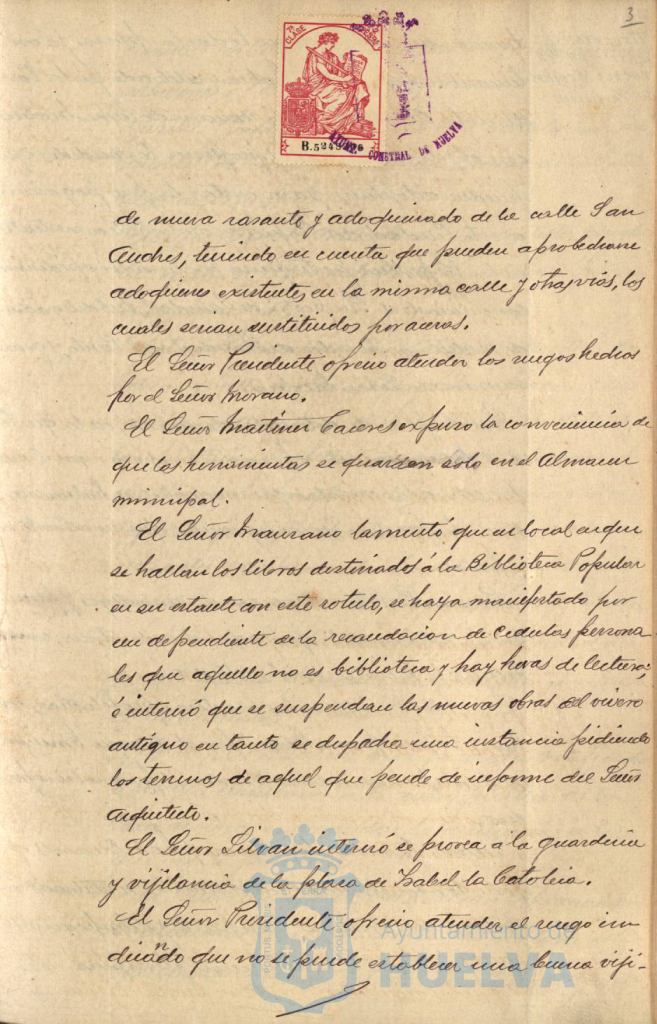 3
7ª CLASE
B.5249
AYUNT. CONSTNAL DE HUELVA
de nueva rasante y adoquinado de la calle San
Andres, teniendo en cuenta que pueden aprobecharse
adoquines existentes en la misma calle y otras vias, los
cuales serian sustituidos por aceras.
El Señor Presidente ofrecio atender los ruegos hechos
por el Señor Morano.
El Señor Martinez Caceres expuso la conveniencia de
que las herramientas se guarden solo en el Almacen
municipal.
El Señor Manzano lamentó que en local en que
se hallan los libros destinados á la Biblioteca Popular
en su estante con este rotulo, se haya manifestado por
un dependiente de la recaudacion de cedulas persona
les que aquello no es biblioteca y hay horas de lectura;
é interesó que se suspendan las nuevas obras del vivero
antiguo en tanto se despacha una instancia pidiendo
los terrenos de aquel que pende de informe del Señor
Arquitecto.
El Señor Silvan interesó se provea á la guarderia
y vijilancia de la plaza de Isabel la Catolica.
El Señor Presidente ofrecio atender el ruego in
dicando que no se puede establecer una buena viji-
Ayuntamiento de
HUELVA